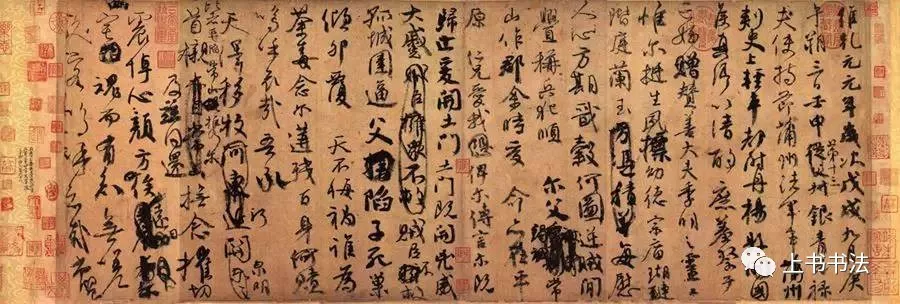 維乾元元年歲次戊戌九月庚
午朔三日壬申第十三從父銀青光祿
夫使持節蒲州諸軍事蒲州
刺史上輕車都尉丹楊縣開國
侯真卿以清酌庶羞祭于
亡姪贈贊善大夫季明之靈曰
惟爾挺生夙標幼德宗廟瑚璉
階庭蘭玉每慰
人心方期戩穀何圖逆賊閒
釁稱兵犯順爾父竭誠常
山作郡余時受命亦在平
原仁兄愛我俾爾傳言爾既
歸止爰開土門土門既開兇威
大蹙賊臣不救
孤城圍逼父陷子死巢
傾卵覆天不悔禍誰為
荼毒念爾遘殘百身何贖
嗚乎哀哉吾承
天澤移牧河關泉明
比者再陷常山攜爾
首櫬及茲同還撫念摧切
震悼心顏方俟遠日
宅魂而有知無嗟
久客嗚呼哀哉尚饗
上书书法